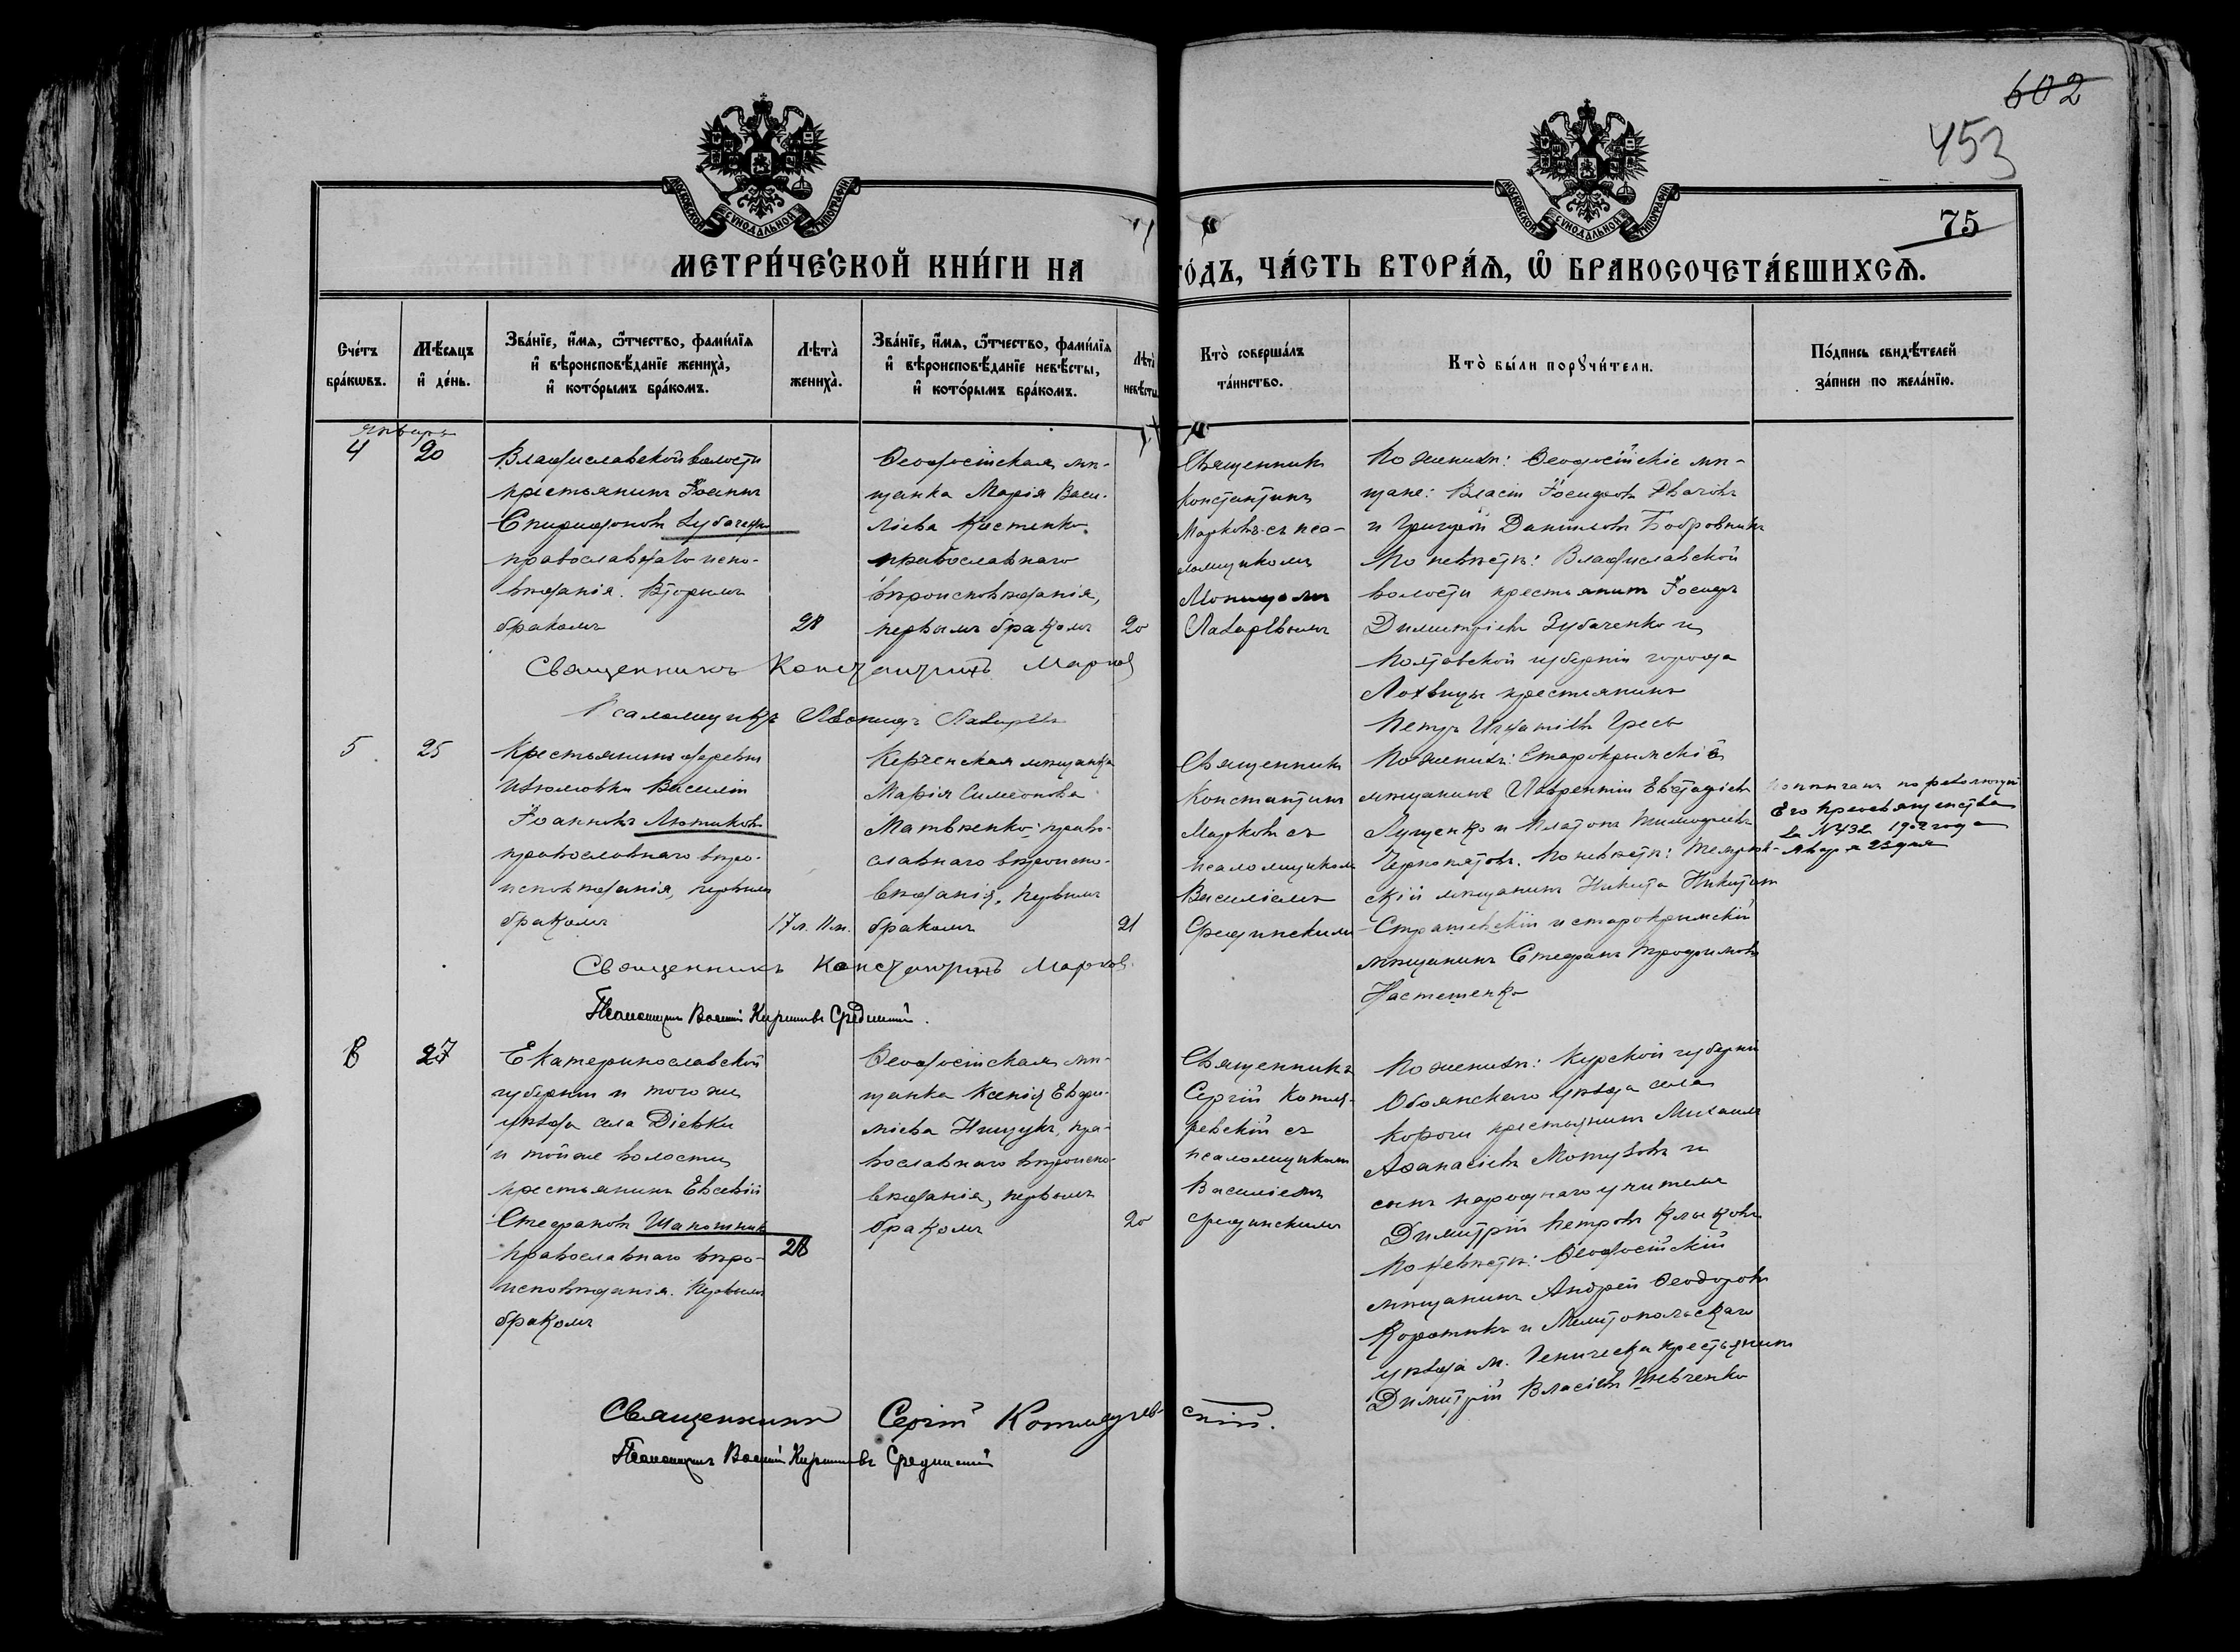 602
453
75
МОСКОВСКОЙ СѴНОДАЛЬНОЙ ТИПОГРАФІИ
МОСКОВСКОЙ СѴНОДАЛЬНОЙ ТИПОГРАФІИ
МЕТРИ́ЧЕСКОЙ КНИ́ГИ НА
ГО́ДЪ, ЧА́СТЬ ВТОРА́Ѧ, Ѡ҆ БРАКОСОЧЕТА́ВШИХСѦ.
Сче́тъ
бра́кѡвъ.
Мѣ́сяцъ
и҆ де́нь.
Зва́нїе, и҆́мѧ, ѻ҆́тчество, фами́лїѧ
и҆ вѣроисповѣ́данїе жениха̀,
и҆ кото́рымъ бра́комъ.
Лѣта̀
жениха̀.
Зва́нїе, и҆́мѧ, ѻ҆́тчество, фами́лїѧ
и҆ вѣроисповѣ́данїе невѣ́сты,
и҆ кото́рымъ бра́комъ.
Лѣта̀
невѣ́сты
Кто̀ соверша́лъ
та́инство.
Кто̀ бы́ли порꙋчи́тели.
По́дпись свидѣ́телей
за́писи по жела́нїю.
Январь
4
20
Владиславской волости
крестьянинъ Іоаннъ
Спиридоновъ Зубаченко
православнаго испо-
вѣданія. Вторымъ
бракомъ
28
Ѳеодосійская мѣ-
щанка Марія Васи-
ліева Костенко
православнаго
вѣроисповѣданія,
первымъ бракомъ
20
Священникъ
Константинъ
Марковъ съ пса-
ломщикомъ
Леонидомъ
Лазаревымъ
По женихѣ: Ѳеодосійскіе мѣ-
щане: Власій Іосифовъ
и Григорій Даніиловъ Бобровникъ
По невѣстѣ: Владиславской
волости крестьянинъ Іосифъ
Димитріевъ Зубаченко и
Полтавской губерніи города
Лохвицы крестьянинъ
Петръ Игнатіевъ Гресь
Священникъ Константинъ Марковъ
Псаломщикъ Леонидъ Лазаревъ
5
25
Крестьянинъ деревни
Изюмовки Василій
Іоанновъ Лютиковъ
православнаго вѣро-
исповѣданія, первымъ
бракомъ
17 л. 11 м.
Керченская мѣщанка
Марія Симеонова
Матвѣенко, право-
славнаго вѣроиспо-
вѣданія, первымъ
бракомъ
21
Священникъ
Константинъ
Марковъ съ
псаломщикомъ
Василіемъ
Срединскимъ
По женихѣ: Старокрымскій
мѣщанинъ Лаврентій Евстафіевъ
Луценко и Платонъ Тимофеевъ
Чернопятовъ. По невѣстѣ: Темрюк-
скій мѣщанинъ Никита Никитинъ
Страшевскій и старокрымскій
мѣщанинъ Стефанъ Трофимовъ
Настетенко
Повѣнчанъ по резолюціи
Его Преосвященства
за № 432 1902 года
Января 23 дня
Священникъ Константинъ Марковъ
Псаломщикъ Василій Кирилловъ Срединскій.
6
27
Екатеринославской
губерніи и того же
уѣзда села Діевки
и той же волости
крестьянинъ Евсевій
Стефановъ Шапошникъ
православнаго вѣро-
исповѣданія. Первымъ
бракомъ
28
Ѳеодосійская мѣ-
щанка Ксенія Евфи-
міева Нищукъ, пра-
вославнаго вѣроиспо-
вѣданія, первымъ
бракомъ
20
Священникъ
Сергій Котля-
ревскій съ
псаломщикомъ
Василіемъ
Срединскимъ
По женихѣ: Курской губерніи
Обоянскаго уѣзда села
Корочи крестьянинъ Михаилъ
Аѳанасіевъ Мотузовъ и
сынъ народнаго учителя
Димитрій Петровъ Клыковъ
По невѣстѣ: Ѳеодосійскій
мѣщанинъ Андрей Ѳеодоровъ
Коротикъ и Мелитопольскаго
уѣзда м. Геническа крестьянинъ
Димитрій Власіевъ Шевченко
Священникъ Сергій Котляревскій.
Псаломщикъ Василій Кирилловъ Срединскій